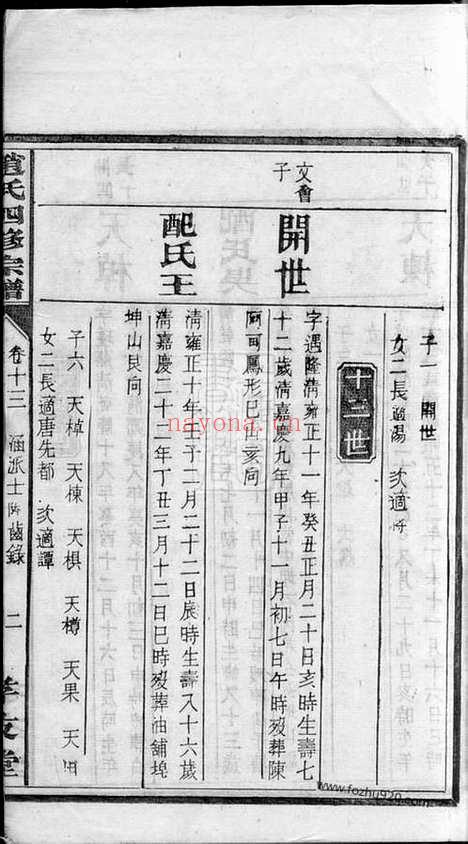 子一 開世
女二長適湯 次適
十三世
文會子
開世
字遇隆清雍正十一年癸丑正月二十日亥時生壽七
十二歲清嘉慶九年甲子十一月初七日午時歿葬陳
鳳形巳山亥向
配氏王
清雍正十年壬子二月二十二日辰時生壽八十六歲
清嘉慶二十二年丁丑三月十二日巳時歿葬油舖埦
坤山艮向
子六 天棹 天棟 天梖 天樽 天果 天
女二長適唐先都 次適譚
氏四修宗譜
卷十三 涵派士 齒錄
二
堂
nayona.cn
www.fozhu920.com